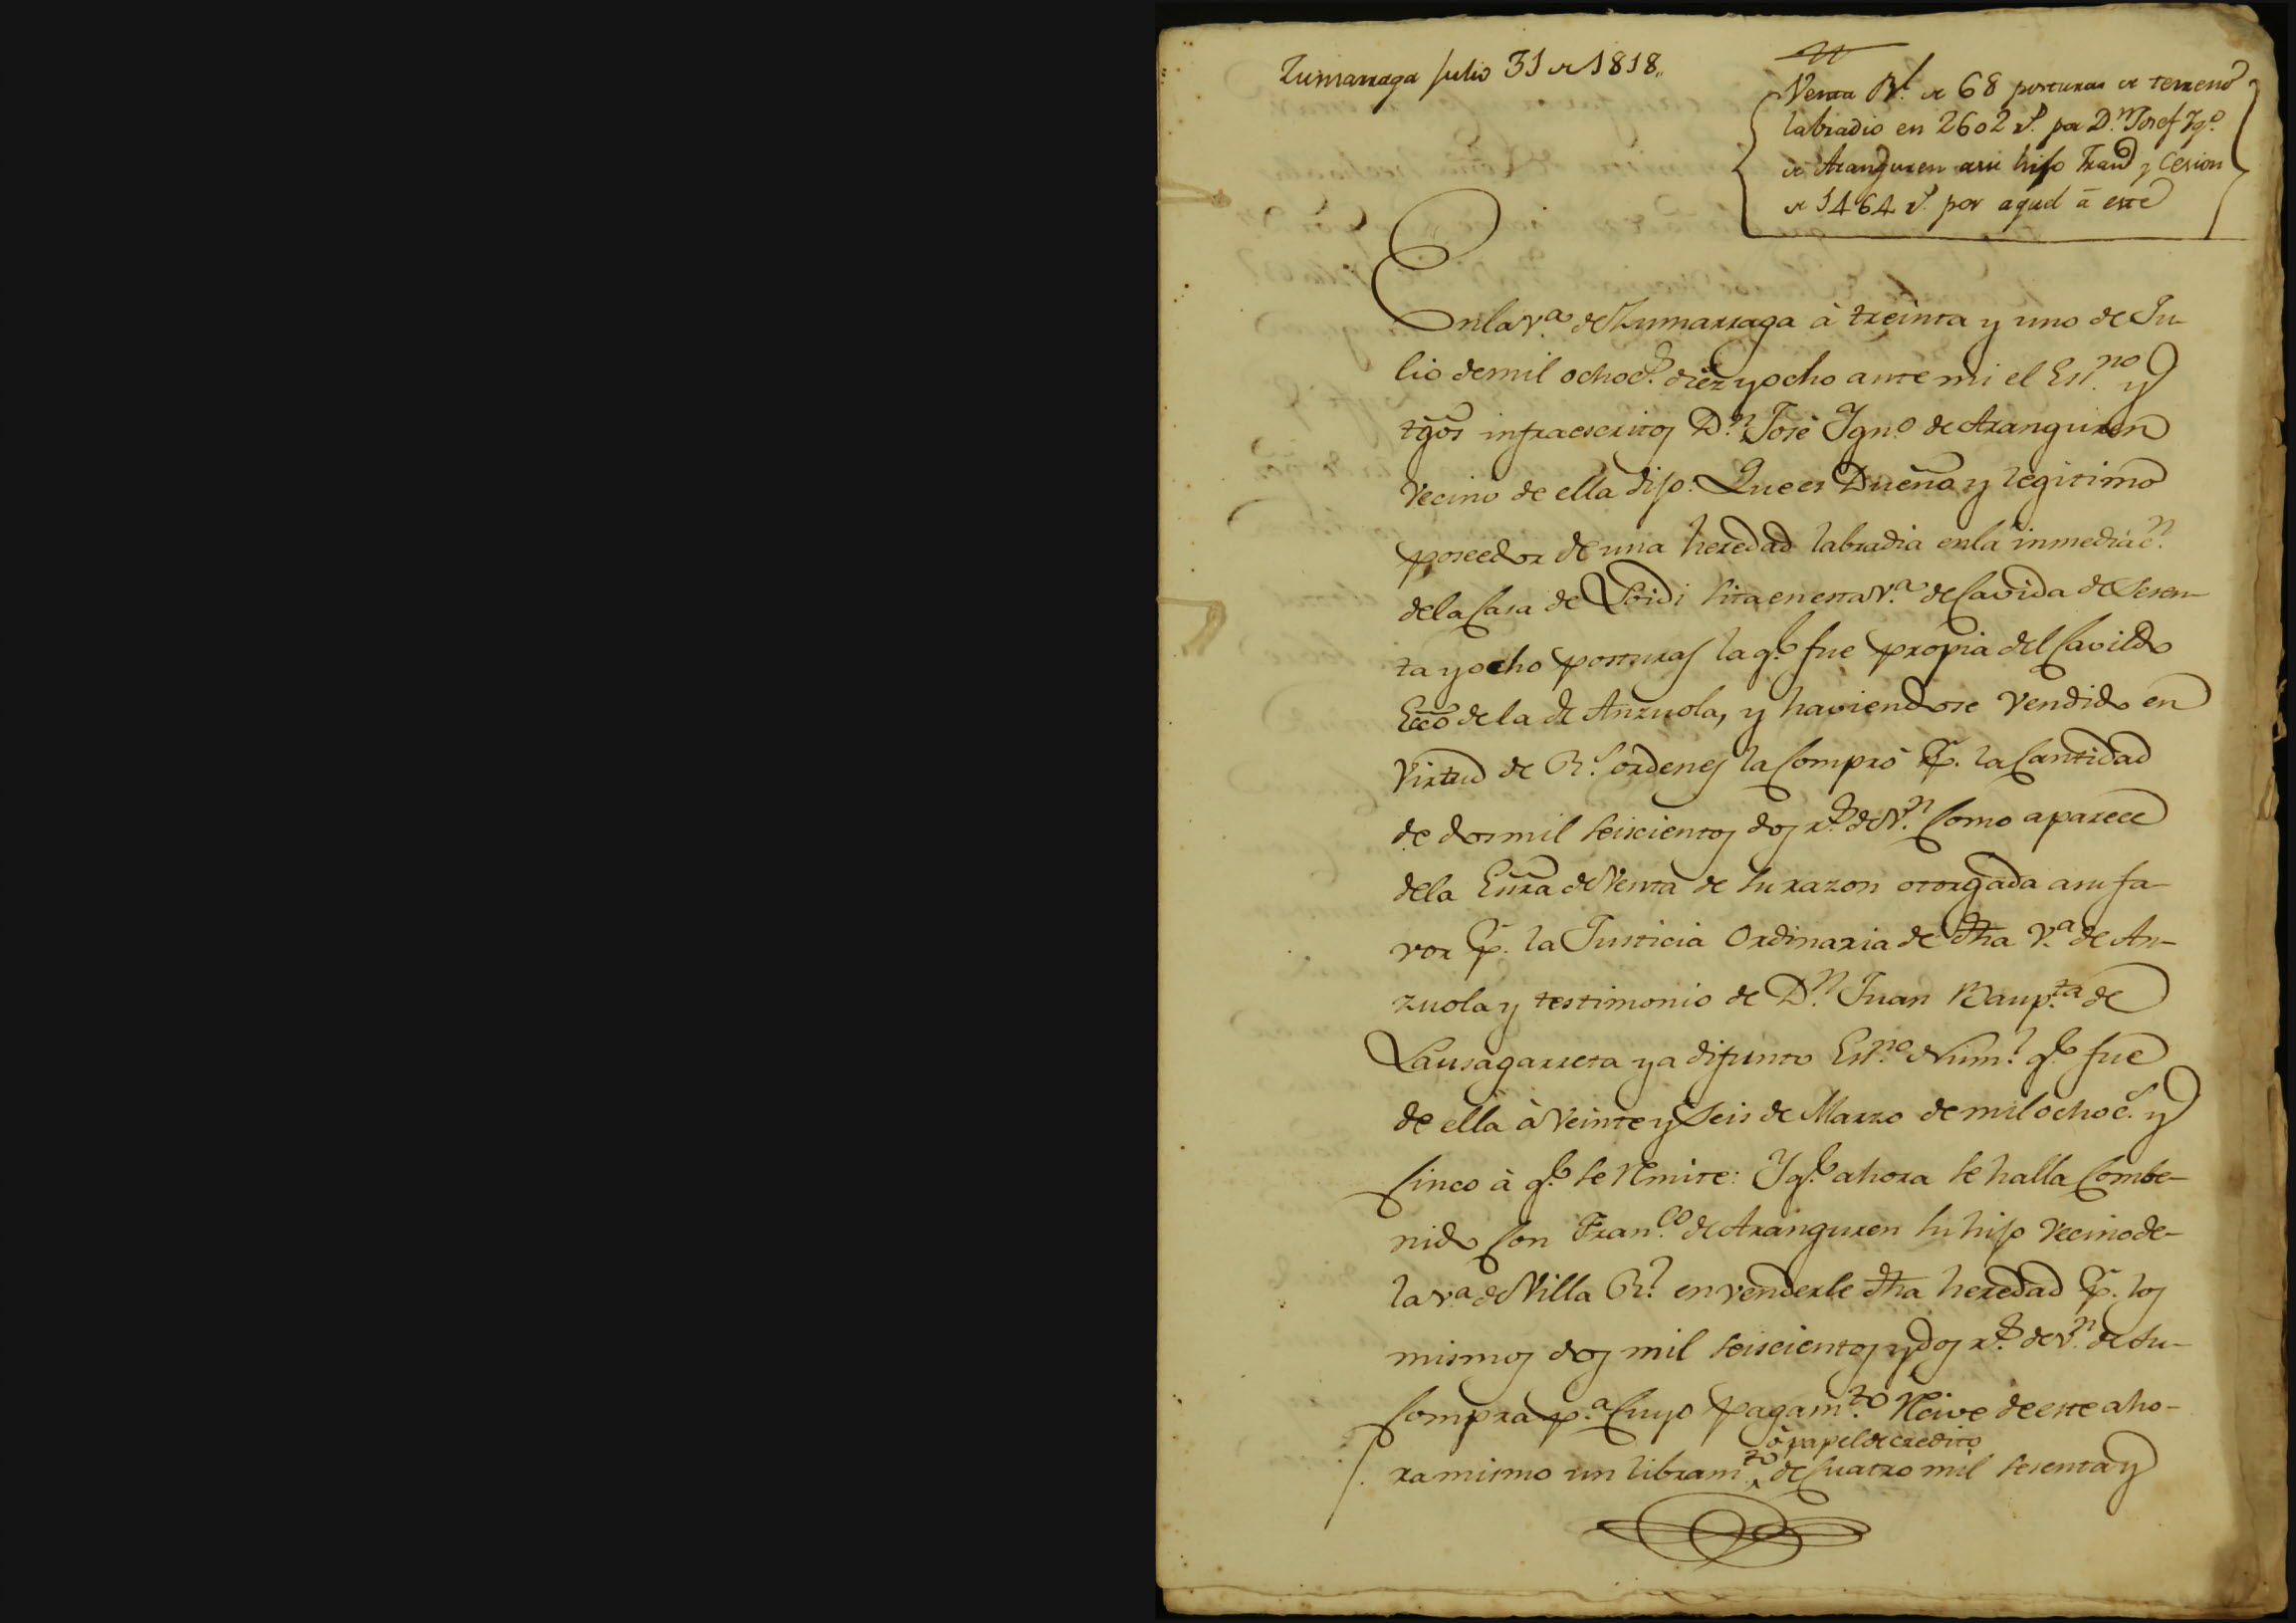 Zumarraga Julio 31 de 1818,,
Venta Rl. de 68 posturas de terreno
labradio en 2602 rs. por Dn. Josef Ygo.
de Aranguren a su hijo Franco y Cesion
de 1464 rs. por aquel â este
En la va. de Zumarraga à treinta y uno de Ju-
lio de mil ochocs. diez y ocho ante mi el Esno. y
tgos infraescritos Dn. José Ygno. de Aranguren
vecino de ella dijo: Que es Dueño y legitimo
poseedor de una heredad labradia en la inmediacn.
de la Casa de Loidi sita en esta va. de Cavida de Sesen-
ta y ocho posturas la qe. fue propia del Cavildo
Ecco de la de Anzuola, y haviendose vendido en
virtud de Rs. ordenes la Comprò Pr. la Cantidad
de dos mil seiscientos dos rs. de vn. Como aparece
de la Esnra de Venta de su razon otorgada a su fa-
vor Pr. la Justicia Ordinaria de dha va. de An-
zuola y testimonio de Dn. Juan Baupta. de
Lausagarreta ya difunto Esno. Numl. qe. fue
de ella à Veinte y Seis de Marzo de mil ochocs. y
Cinco à qe. se remite: Y qe. ahora se halla Combe-
nido Con Franco. de Aranguren su hijo vecino de-
la va. de Villa Rl. en venderle dha heredad Pr. los
mismos dos mil seiscientos y dos rs. de vn. de su-
Compra pa. Cuyo pagamto. recive de este aho-
ò papel de credito
ra mismo un libramto. de Cuatro mil sesenta y